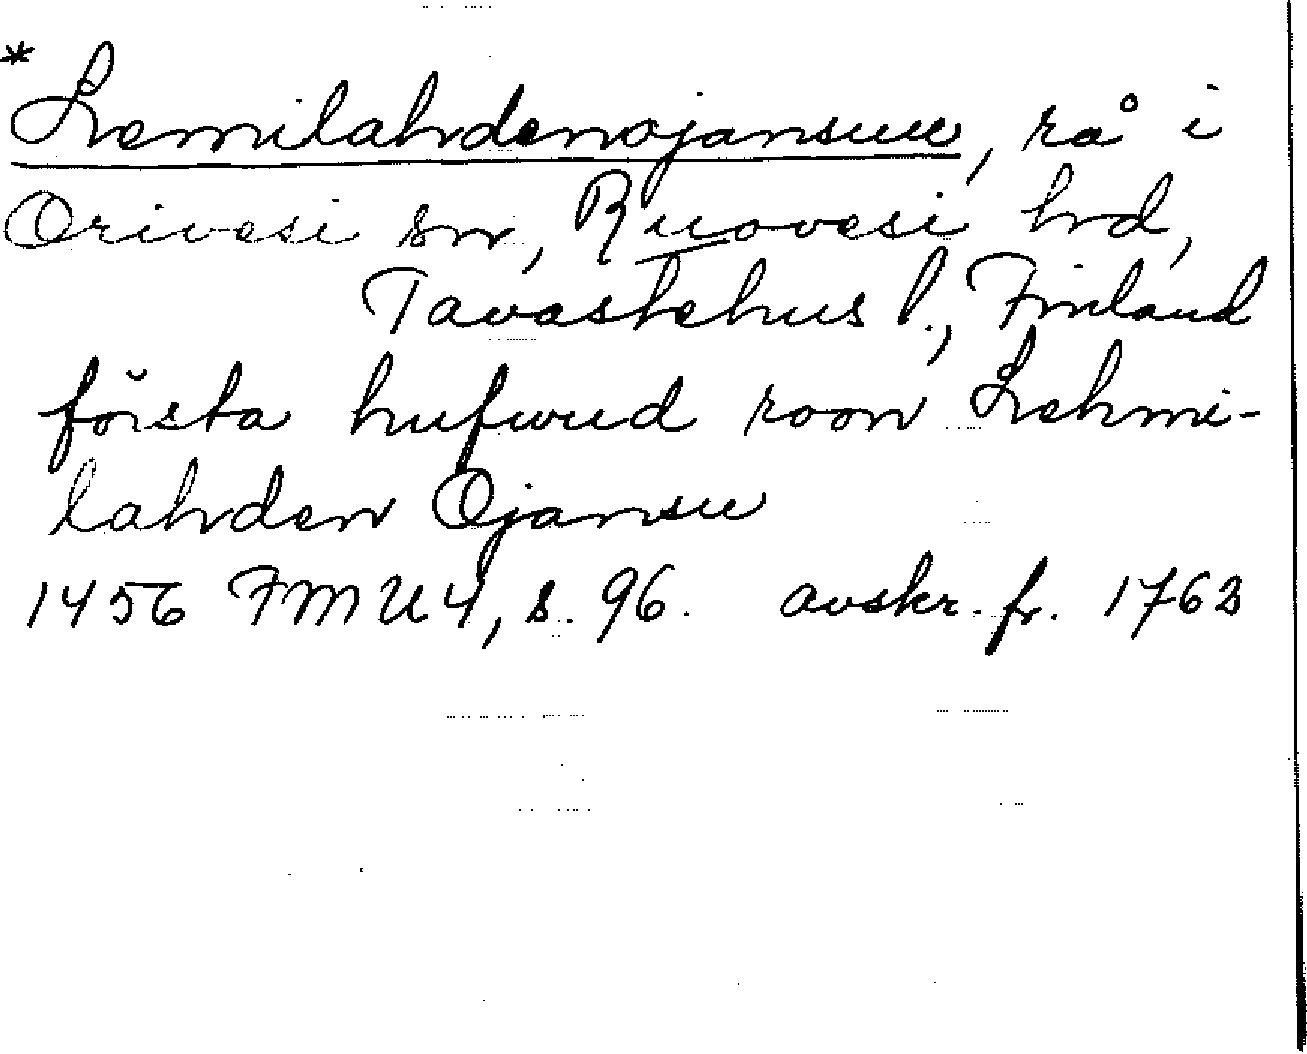 * Lemilahdenojansuu, rå i
Orivesi sn, Ruovesi hd,
Tavastehus l., Finland
första hufwud roon Lehmi-
lahden Ojansu
1456 FMU 4, s. 96. avskr. fr. 1763